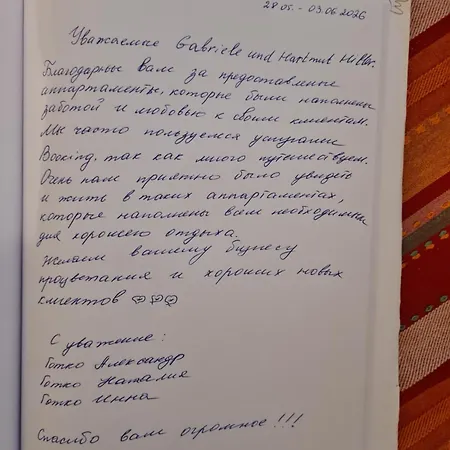 28.05. - 03.06.2026
Уважаемые Gabriele und Hartmut Hiller.
Благодарны Вам за предоставление
аппартаменты, которые были наполнены
заботой и любовью к своим клиентам.
Мы часто пользуемся услугами
Booking, так как много путешествуем.
Очень нам приятно было увидеть
и жить в таких аппартаментах,
которые наполнены всем необходимым
для хорошего отдыха.
Желаем вашему бизнесу
процветания и хороших новых
клиентов
С уважение:
Готко Александр
Готко Наталия
Готко Инна
Спасибо вам огромное!!!